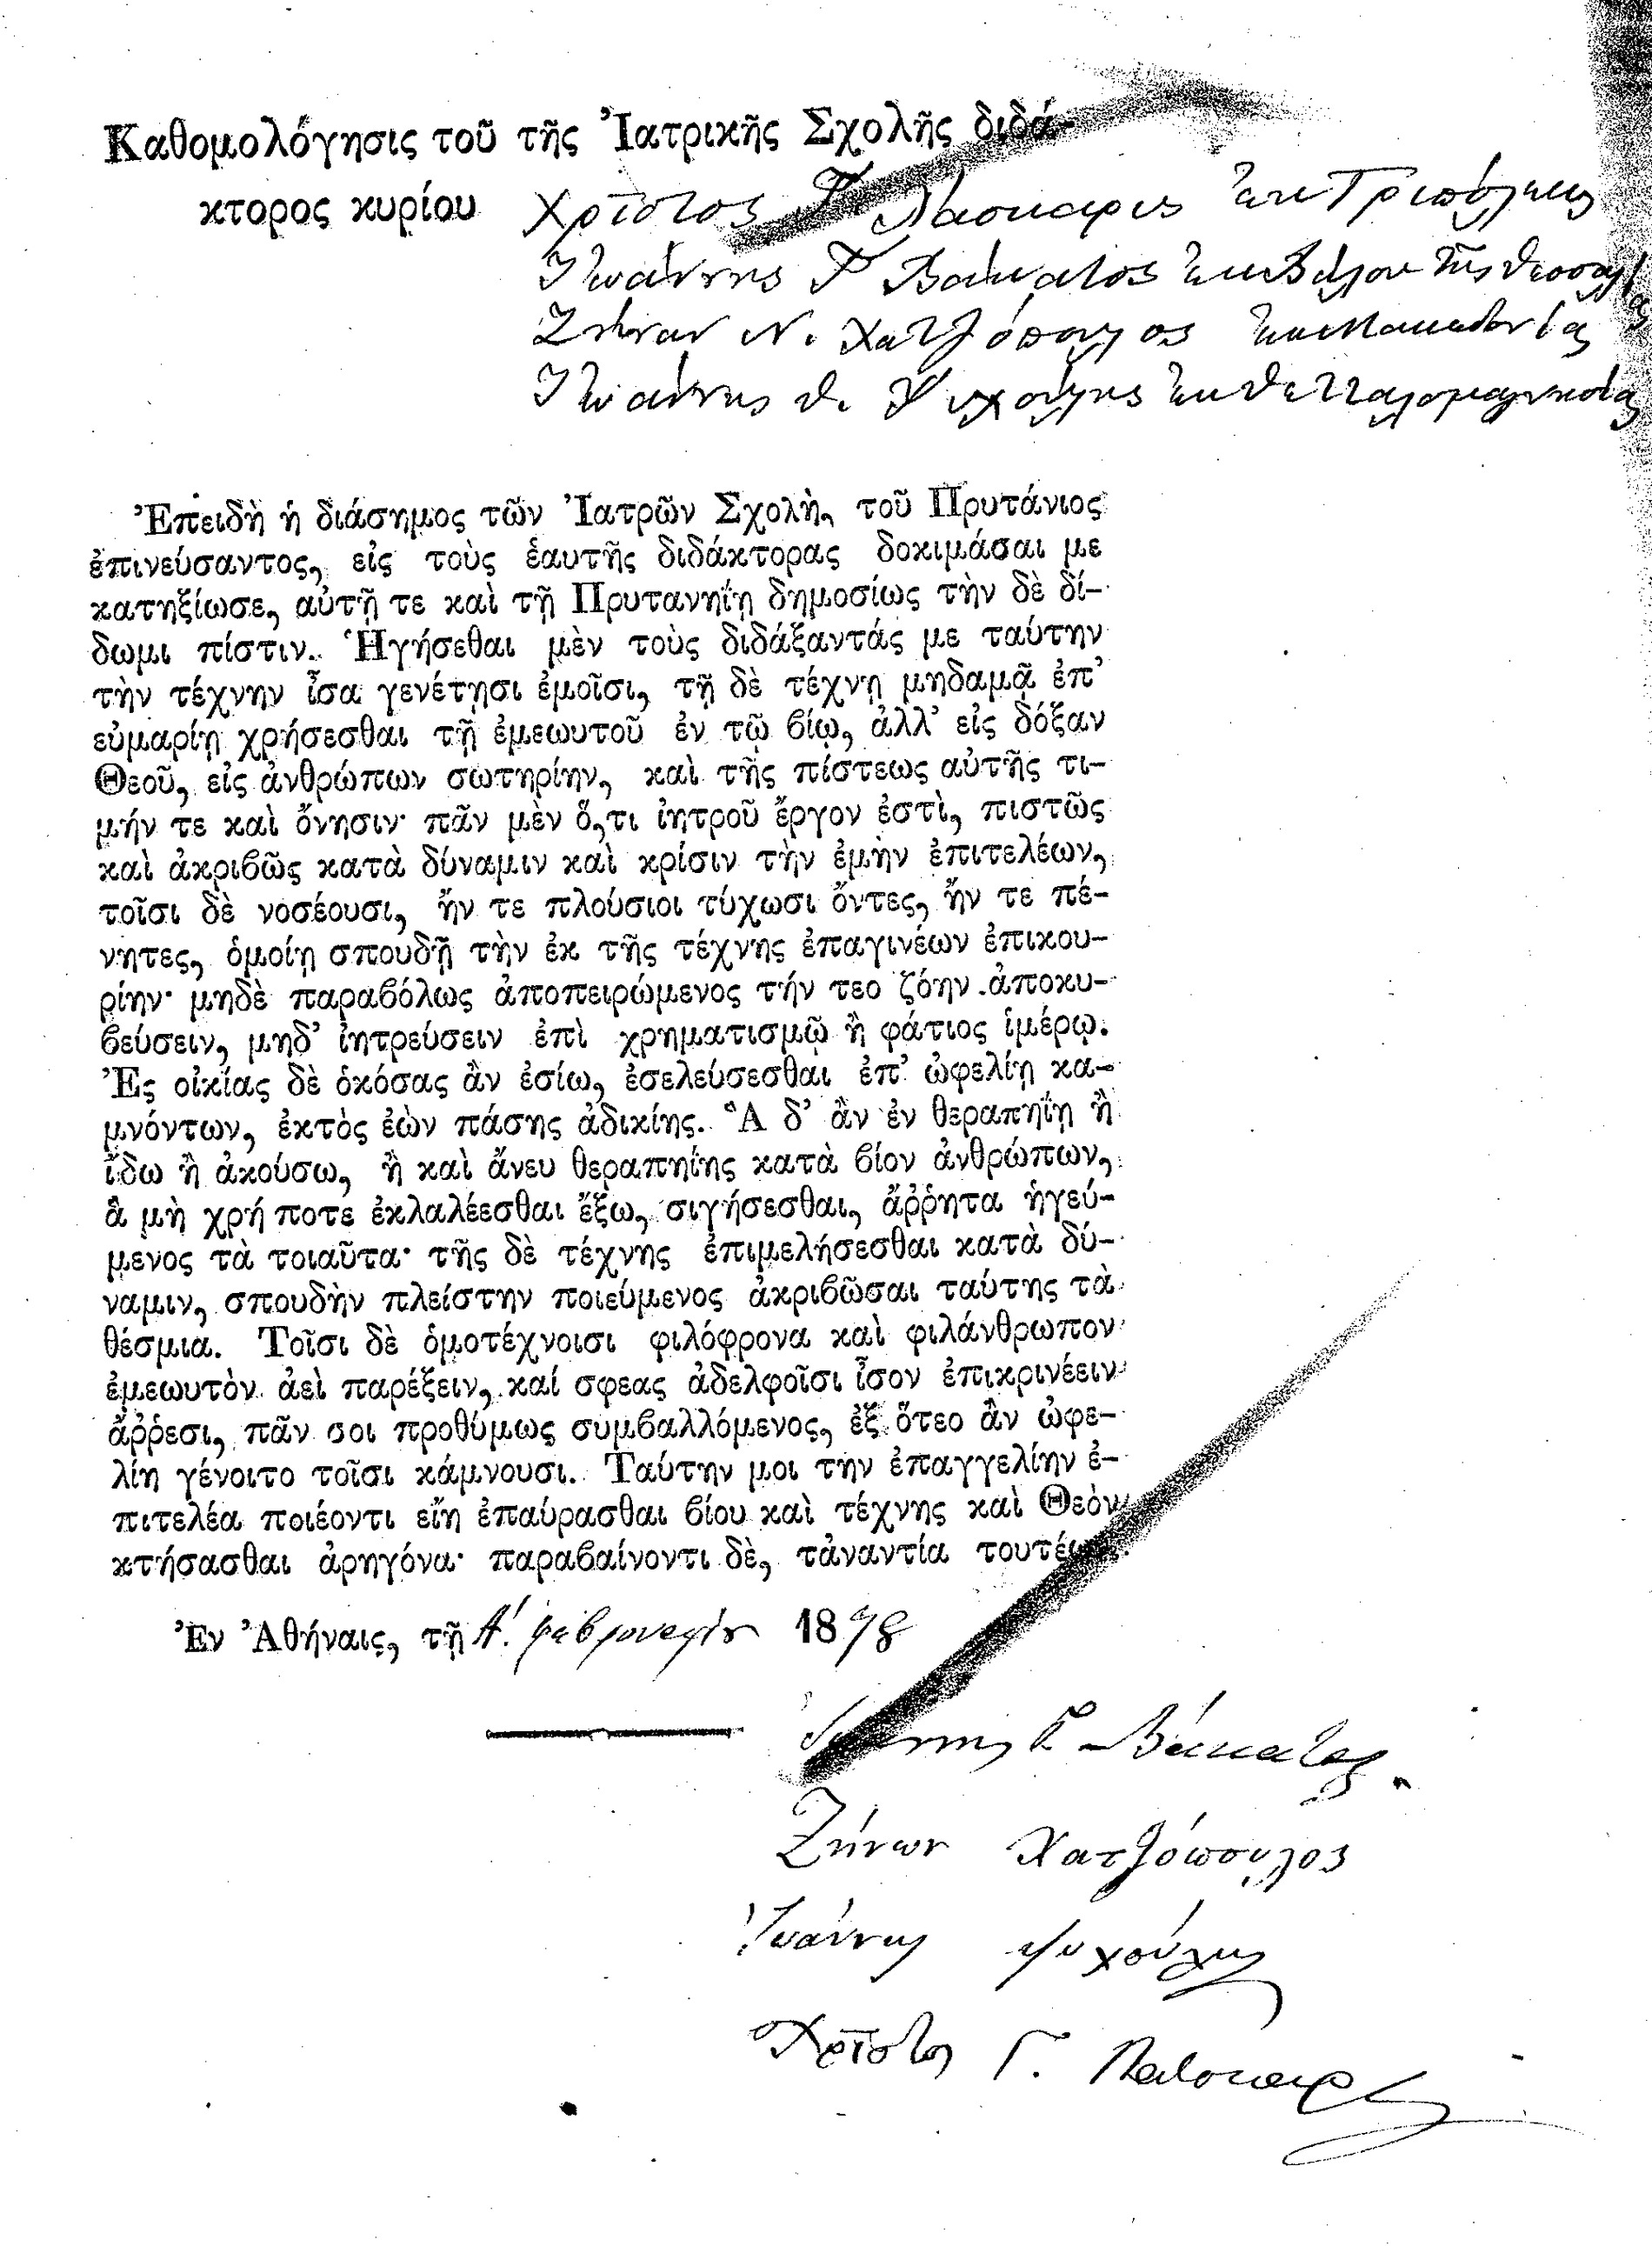 Καθομολόγησις τοῦ τῆς Ἰατρικῆς Σχολῆς διδά-
κτορος κυρίου Χρῖστος Γ. Λάσκαρις ἐκ Τριπόλεως
Ἰωάννης Γ. Βάκατος ἐκ Βόλου τῆς Θεσσαλίας
Ζήνων Ν. Χατζόπουλος ἐκ Μακεδονίας
Ἰωάννης Θ. Ψυχούλης ἐκ Θετταλομαγνησίας
Ἐπειδὴ ἡ διάσημος τῶν Ἰατρῶν Σχολὴ, τοῦ Πρυτάνιος
ἐπινεύσαντος, εἰς τοὺς ἑαυτῆς διδάκτορας δοκιμάσαι με
κατηξίωσε, αὐτῇ τε καὶ τῇ Πρυτανηΐῃ δημοσίως τὴν δὲ δί-
δωμι πίστιν. Ἡγήσεθαι μὲν τοὺς διδάξαντάς με ταύτην
τὴν τέχνην ἶσα γενέτῃσι ἐμοῖσι, τῇ δὲ τέχνῃ μηδαμᾷ ἐπ’
εὐμαρίῃ χρήσεσθαι τῇ ἐμεωυτοῦ ἐν τῷ βίῳ, ἀλλ’ εἰς δόξαν
Θεοῦ, εἰς ἀνθρώπων σωτηρίην, καὶ τῆς πίστεως αὐτῆς τι-
μήν τε καὶ ὄνησιν· πᾶν μὲν ὅ,τι ἰητροῦ ἔργον ἐστὶ, πιστῶς
καὶ ἀκριβῶς κατὰ δύναμιν καὶ κρίσιν τὴν ἐμὴν ἐπιτελέων,
τοῖσι δὲ νοσέουσι, ἤν τε πλούσιοι τύχωσι ὄντες, ἤν τε πέ-
νητες, ὁμοίῃ σπουδῇ τὴν ἐκ τῆς τέχνης ἐπαγινέων ἐπικου-
ρίην· μηδὲ παραβόλως ἀποπειρώμενος τήν τεο ζόην ἀποκυ-
βεύσειν, μηδ’ ἰητρεύσειν ἐπὶ χρηματισμῷ ἢ φάτιος ἱμέρῳ.
Ἐς οἰκίας δὲ ὁκόσας ἂν ἐσίω, ἐσελεύσεσθαι ἐπ’ ὠφελίῃ κα-
μνόντων, ἐκτὸς ἐὼν πάσης ἀδικίης. Ἃ δ’ ἂν ἐν θεραπηΐῃ ἢ
ἴδω ἢ ἀκούσω, ἢ καὶ ἄνευ θεραπηΐης κατὰ βίον ἀνθρώπων,
ἃ μὴ χρή ποτε ἐκλαλέεσθαι ἔξω, σιγήσεσθαι, ἄῤῥητα ἡγεύ-
μενος τὰ τοιαῦτα· τῆς δὲ τέχνης ἐπιμελήσεσθαι κατὰ δύ-
ναμιν, σπουδὴν πλείστην ποιεύμενος ἀκριβῶσαι ταύτης τὰ
θέσμια. Τοῖσι δὲ ὁμοτέχνοισι φιλόφρονα καὶ φιλάνθρωπον
ἐμεωυτὸν ἀεὶ παρέξειν, καί σφεας ἀδελφοῖσι ἶσον ἐπικρινέειν
ἄῤῥεσι, πᾶν σοι προθύμως συμβαλλόμενος, ἐξ ὅτεο ἂν ὠφε-
λίη γένοιτο τοῖσι κάμνουσι. Ταύτην μοι την ἐπαγγελίην ἐ-
πιτελέα ποιέοντι εἴη ἐπαύρασθαι βίου καὶ τέχνης καὶ Θεὸν
κτήσασθαι ἀρηγόνα· παραβαίνοντι δὲ, τἀναντία τουτέων.
Ἐν Ἀθήναις, τῇ Α΄. φεβρουαρίου 1898
Ἰωάννης Γ. Βάκατος.
Ζήνων Χατζόπουλος
Ἰωάννης Ψυχούλης
Χρῖστος Γ. Λάσκαρις